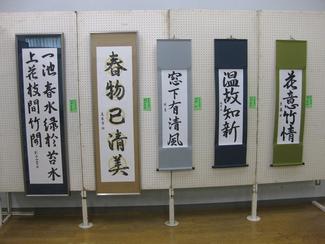 一池春水緑於苔水
上花枝間竹開
春物已清美
窓下有清風
温故知新
花意竹情